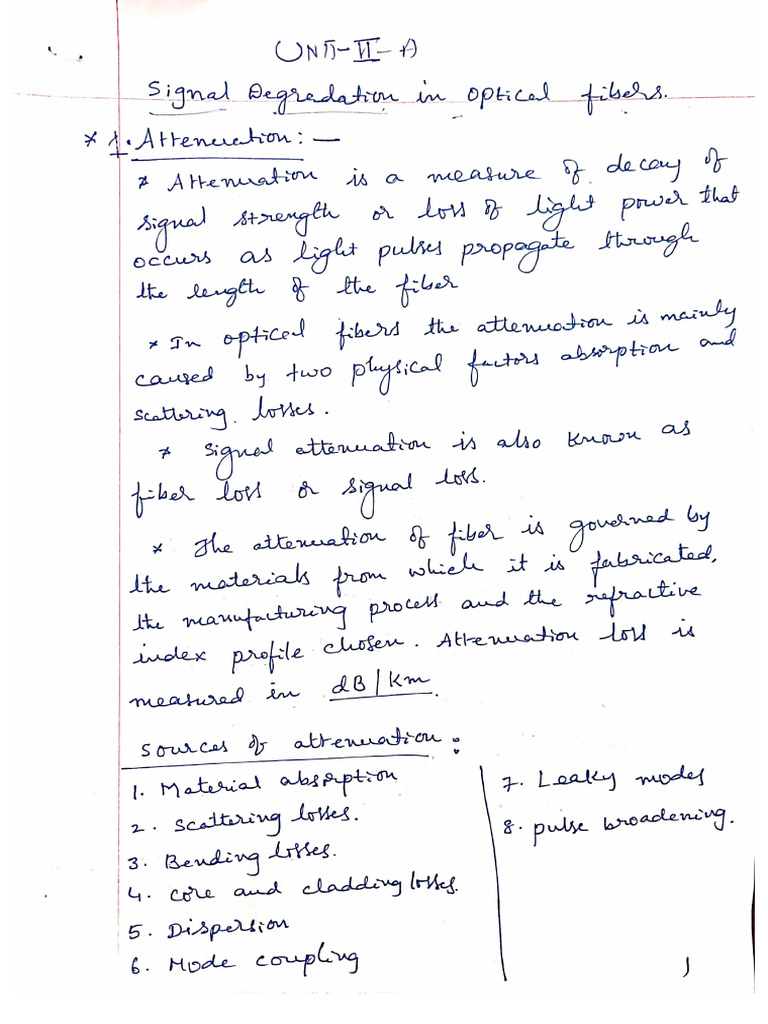 UNIT-VI-A
Signal Degradation in optical fibers.
* 1. Attenuation: —
* Attenuation is a measure of decay of
signal strength or loss of light power that
occurs as light pulses propagate through
the length of the fiber
* In optical fibers the attenuation is mainly
caused by two physical factors absorption and
scattering losses.
* Signal attenuation is also known as
fiber loss or signal loss.
* The attenuation of fiber is governed by
the materials from which it is fabricated,
the manufacturing process and the refractive
index profile chosen. Attenuation loss is
measured in dB/km.
Sources of attenuation:
1. Material absorption
2. Scattering losses.
3. Bending losses.
4. core and cladding losses.
5. Dispersion
6. Mode coupling
7. Leaky modes
8. pulse broadening.
1